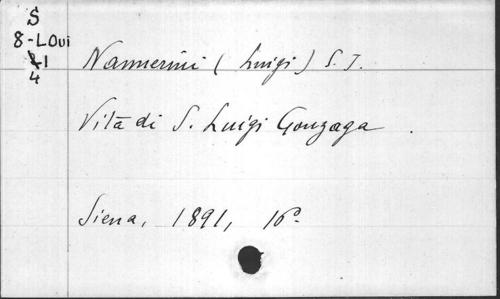 S
8-LOui
21
4
Nannerini (Luigi) S. J.
Vita di S. Luigi Gonzaga.
Siena, 1891, 16º.